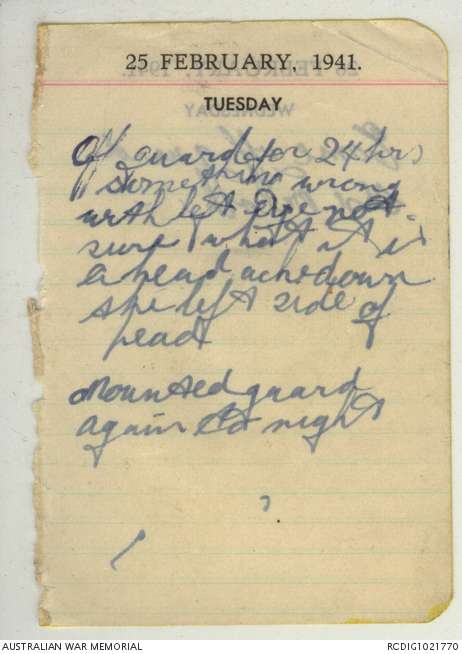 25 FEBRUARY, 1941.
TUESDAY
Off guard for 24 hrs
something wrong
with left eye not
sure what it is
a head ache down
the left side of
head
Mounted guard
again to night
AUSTRALIAN WAR MEMORIAL
RCDIG1021770